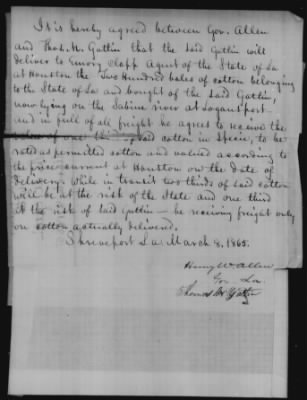 It is hereby agreed between Gov. Allen
and Thos. M. Gattin that the said Gattin will
deliver to Emory Clapp Agent of the State of La
at Houston the Two Hundred bales of cotton belonging
to the State of La and bought of the said Gattin,
now lying on the Sabine river at Logansport
and in full of all freight he agrees to receive the
value of one third said cotton in specie, to be
rated as permitted cotton and valued according to
the price current at Houston on the date of
delivery. While in transit two thirds of said cotton
will be at the risk of the State and one third
at the risk of said Gattin — he receiving freight only
on cotton actually delivered.
Shreveport La. March 8, 1865.
Henry W. Allen
Gov. La.
Thomas M Gattin